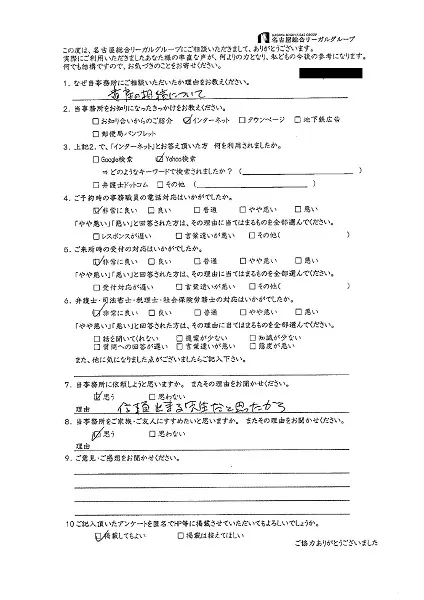 NAGOYA SOGO LEGAL GROUP
名古屋総合リーガルグループ
この度は、名古屋総合リーガルグループにご相談いただきまして、ありがとうございます。
実際にご利用いただきましたあなた様の率直な声が、何よりの力となり、私どもの今後の参考になります。
何でも結構ですので、お気づきのことをお寄せください。
1. なぜ当事務所にご相談いただいたか理由をお教えください。
資産の相続について
2. 当事務所をお知りになったきっかけをお教えください。
□お知り合いからのご紹介 ☑インターネット □タウンページ □地下鉄広告
□郵便局パンフレット
3. 上記2.で、「インターネット」とお答え頂いた方 何を利用されましたか。
□Google検索 ☑Yahoo検索
⇒どのようなキーワードで検索されましたか?( )
□弁護士ドットコム □その他 ( )
4. ご予約時の事務職員の電話対応はいかがでしたか。
☑非常に良い □良い □普通 □やや悪い □悪い
「やや悪い」「悪い」と回答された方は、その理由に当てはまるものを全部選んでください。
□レスポンスが遅い □言葉遣いが悪い □その他( )
5. ご来所時の受付の対応はいかがでしたか。
☑非常に良い □良い □普通 □やや悪い □悪い
「やや悪い」「悪い」と回答された方は、その理由に当てはまるものを全部選んでください。
□受付対応が遅い □言葉遣いが悪い □その他( )
6. 弁護士・司法書士・税理士・社会保険労務士の対応はいかがでしたか。
☑非常に良い □良い □普通 □やや悪い □悪い
「やや悪い」「悪い」と回答された方は、その理由に当てはまるものを全部選んでください。
□話を聞いてくれない □提案が少ない □知識が少ない
□質問への回答が遅い □言葉遣いが悪い □態度が悪い
また、他に気になりました点がございましたらご記入下さい。
7. 当事務所に依頼しようと思いますか。 またその理由をお聞かせください。
☑思う □思わない
理由 信頼出来る先生だと思ったから
8. 当事務所をご家族・ご友人にすすめたいと思いますか。 またその理由をお聞かせください。
☑思う □思わない
理由
9. ご意見・ご感想をお聞かせください。
10.ご記入頂いたアンケートを匿名でHP等に掲載させていただいてもよろしいでしょうか。
☑掲載してもよい □掲載は控えてほしい
ご協力ありがとうございました